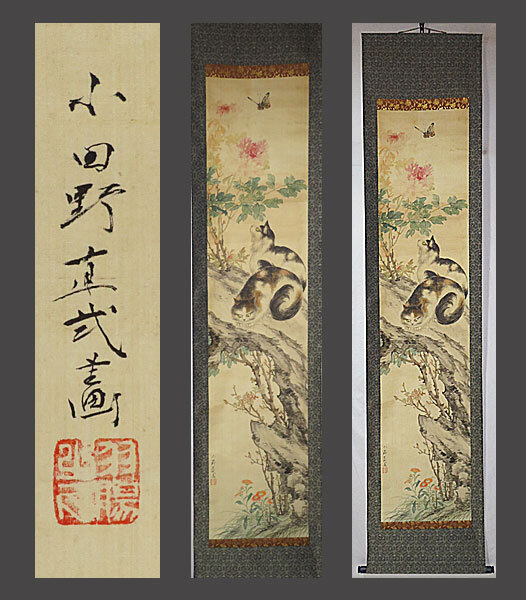 小田野直武畫